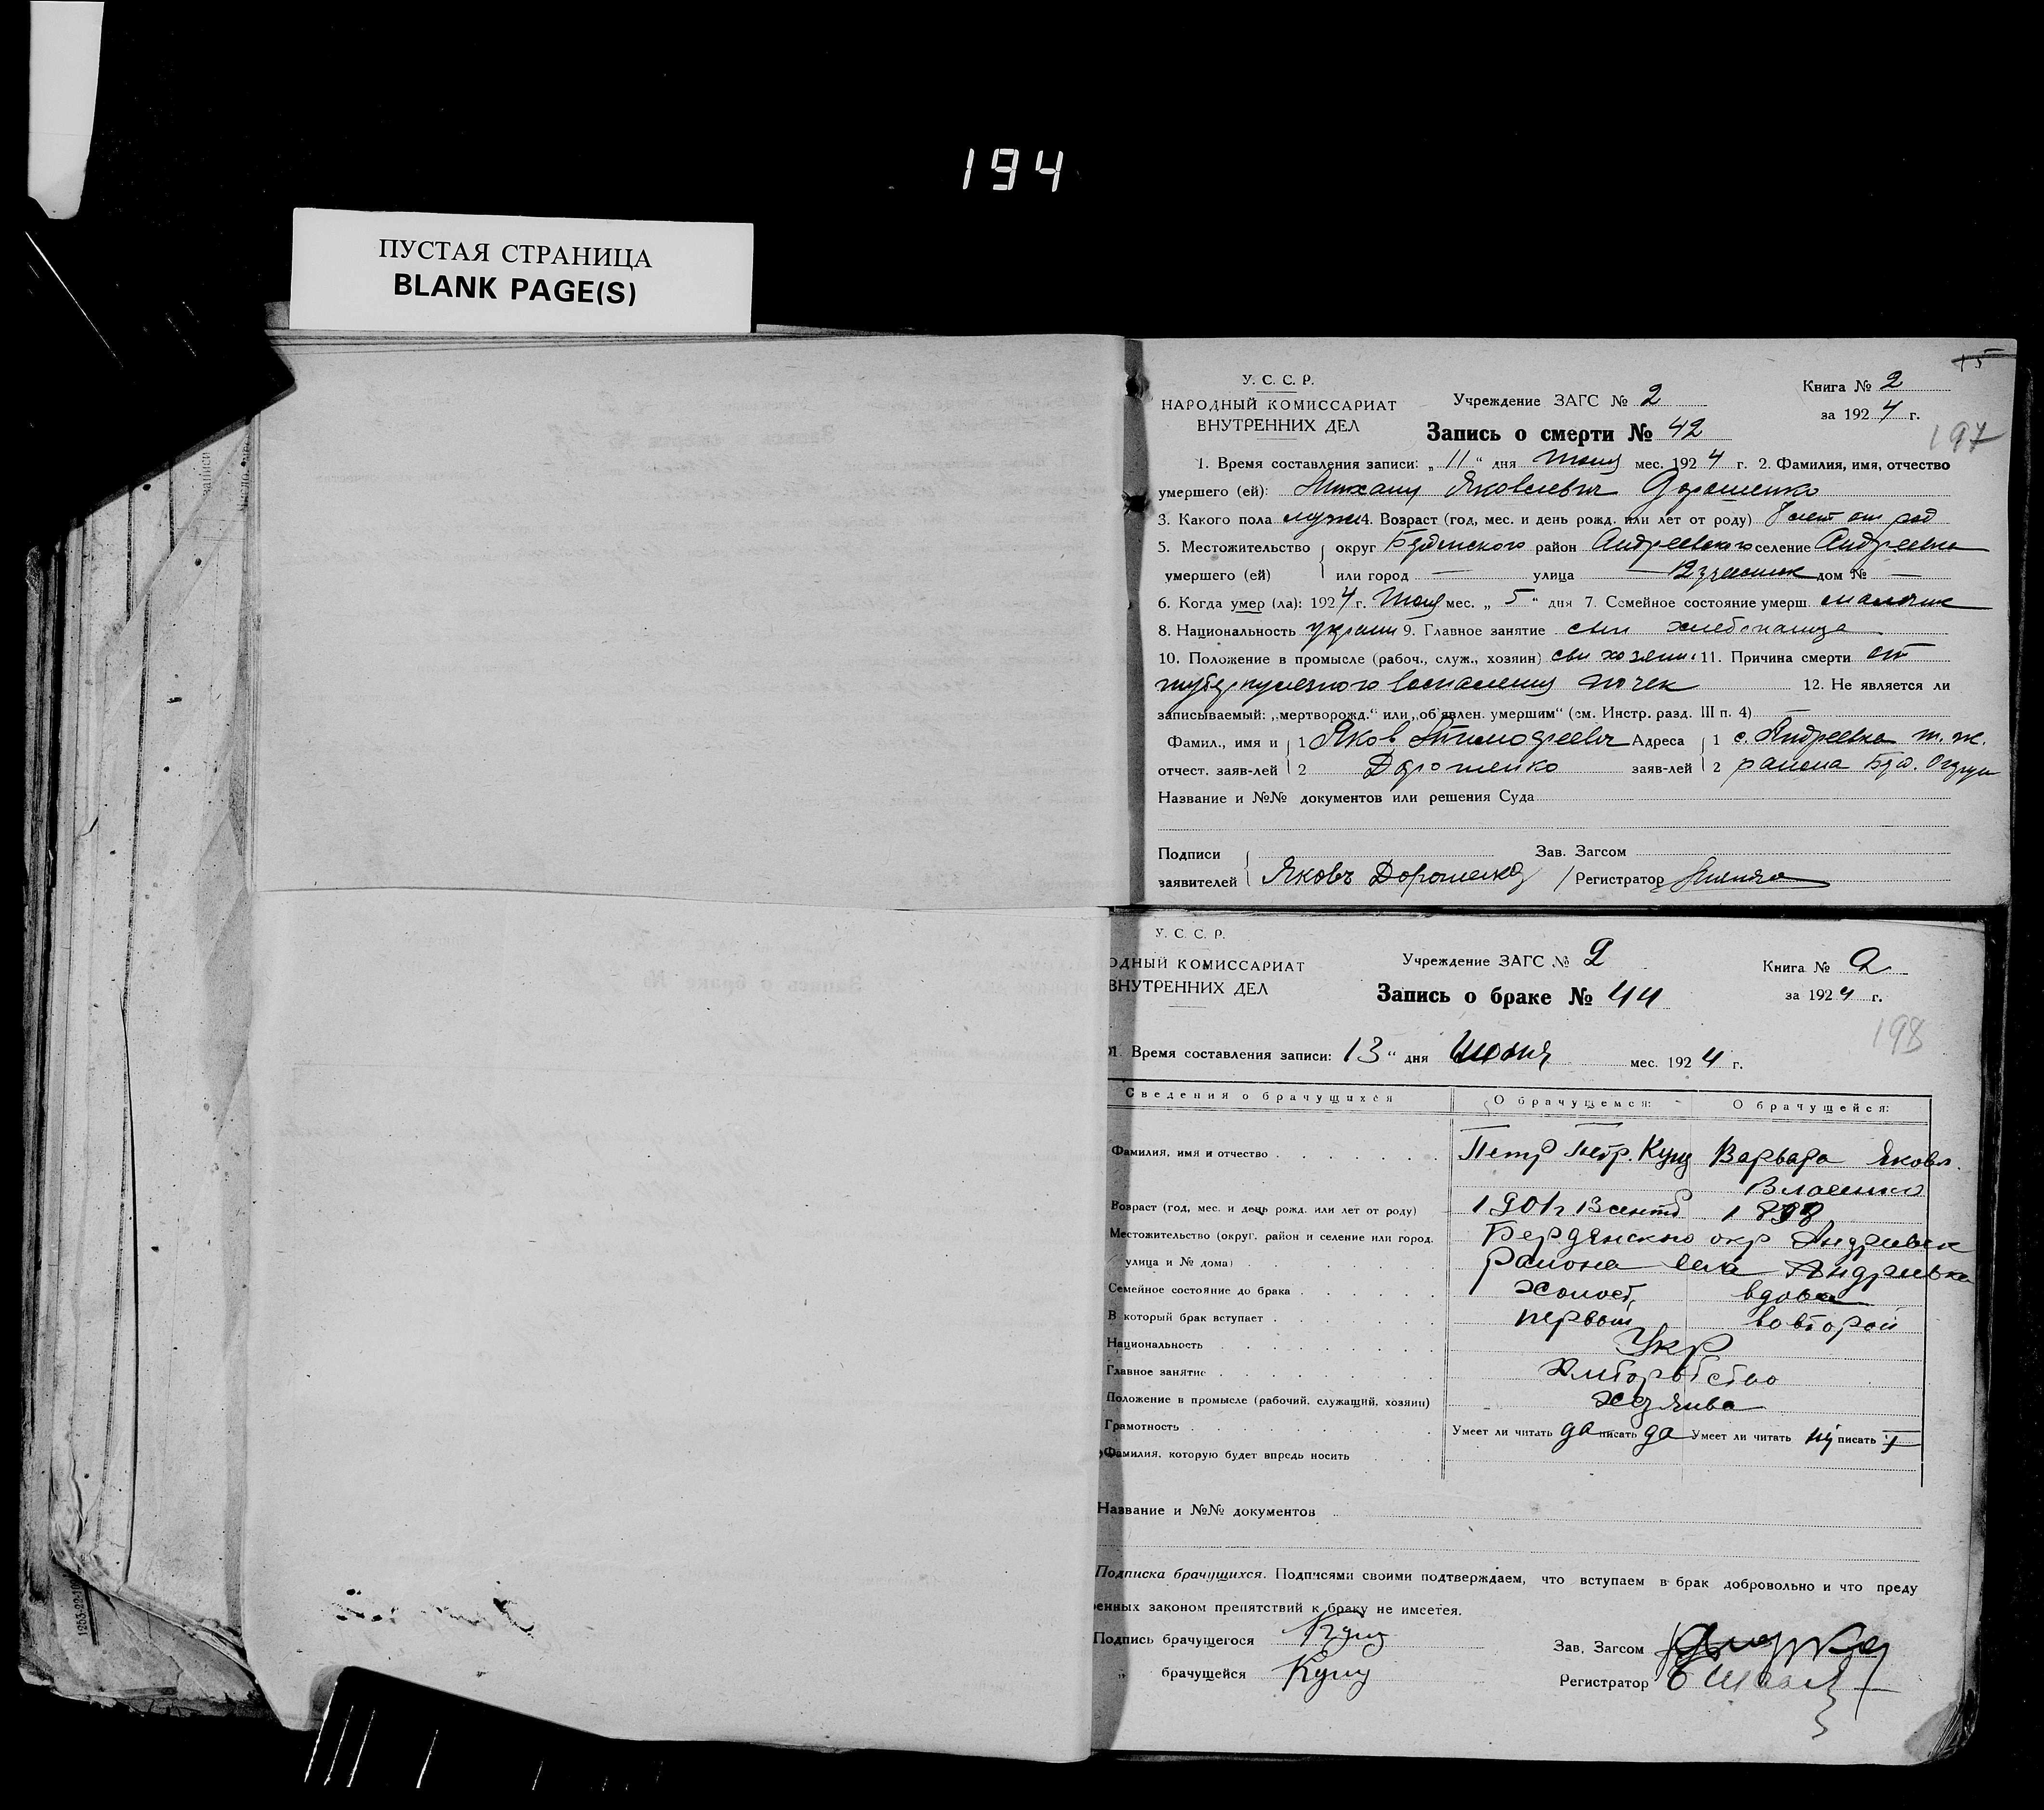 194
ПУСТАЯ СТРАНИЦА
BLANK PAGE(S)
15
У. С. С. Р.
НАРОДНЫЙ КОМИССАРИАТ
ВНУТРЕННИХ ДЕЛ
Учреждение ЗАГС № 2
Книга № 2
за 1924 г.
Запись о смерти № 42
197
1. Время составления записи: „11“ дня Июня мес. 1924 г. 2. Фамилия, имя, отчество
умершего (ей): Михаил Яковлевич Дорошенко
3. Какого пола мужс 4. Возраст (год, мес. и день рожд. или лет от роду) 8 лет от род
5. Местожительство округ Бердянского район Андреевского селение Андреевка
умершего (ей) или город — улица — дом № —
6. Когда умер (ла): 1924 г. Июня мес. „5“ дня 7. Семейное состояние умерш. мальчик
8. Национальность украин 9. Главное занятие сын хлебопашца
10. Положение в промысле (рабоч., служ., хозяин) сын хозяин. 11. Причина смерти от
туберкулезного воспаления почек 12. Не является ли
записываемый: „мертворожд.“ или „об'явлен. умершим“ (см. Инстр. разд. III п. 4) —
Фамил., имя и 1 Яков Тимофеевич Адреса 1 с. Андреевка т. ж.
отчест. заяв-лей 2 Дорошенко заяв-лей 2 района Бер. Округа
Название и №№ документов или решения Суда
Подписи Зав. Загсом
заявителей Яковъ Дорошенко Регистратор
У. С. С. Р.
ОДНЫЙ КОМИССАРИАТ
ВНУТРЕННИХ ДЕЛ
Учреждение ЗАГС № 2
Книга № 2
за 1924 г.
Запись о браке № 44
198
1. Время составления записи: 13“ дня Июня мес. 1924 г.
Сведения о брачущихся О брачущемся: О брачущейся:
Фамилия, имя и отчество Петр Петр. Кущ Варвара Яковл.
Власенко
Возраст (год, мес. и день рожд. или лет от роду) 1901 г 13 сентб 1898
Местожительство (округ, район и селение или город, Бердянского окр Андреевск
улица и № дома) района села Андреевка
Семейное состояние до брака холост, вдова
В который брак вступает первый во второй
Национальность Укр
Главное занятие Хлиборобство
Положение в промысле (рабочий, служащий, хозяин) хозяива
Грамотность Умеет ли читать да писать да Умеет ли читать писать
Фамилия, которую будет впредь носить
Название и №№ документов
Подписка брачущихся. Подписями своими подтверждаем, что вступаем в брак добровольно и что преду
енных законом препятствий к браку не имеется.
Подпись брачущегося Кущ Зав. Загсом
„ брачущейся Кущ Регистратор
1253-22-10